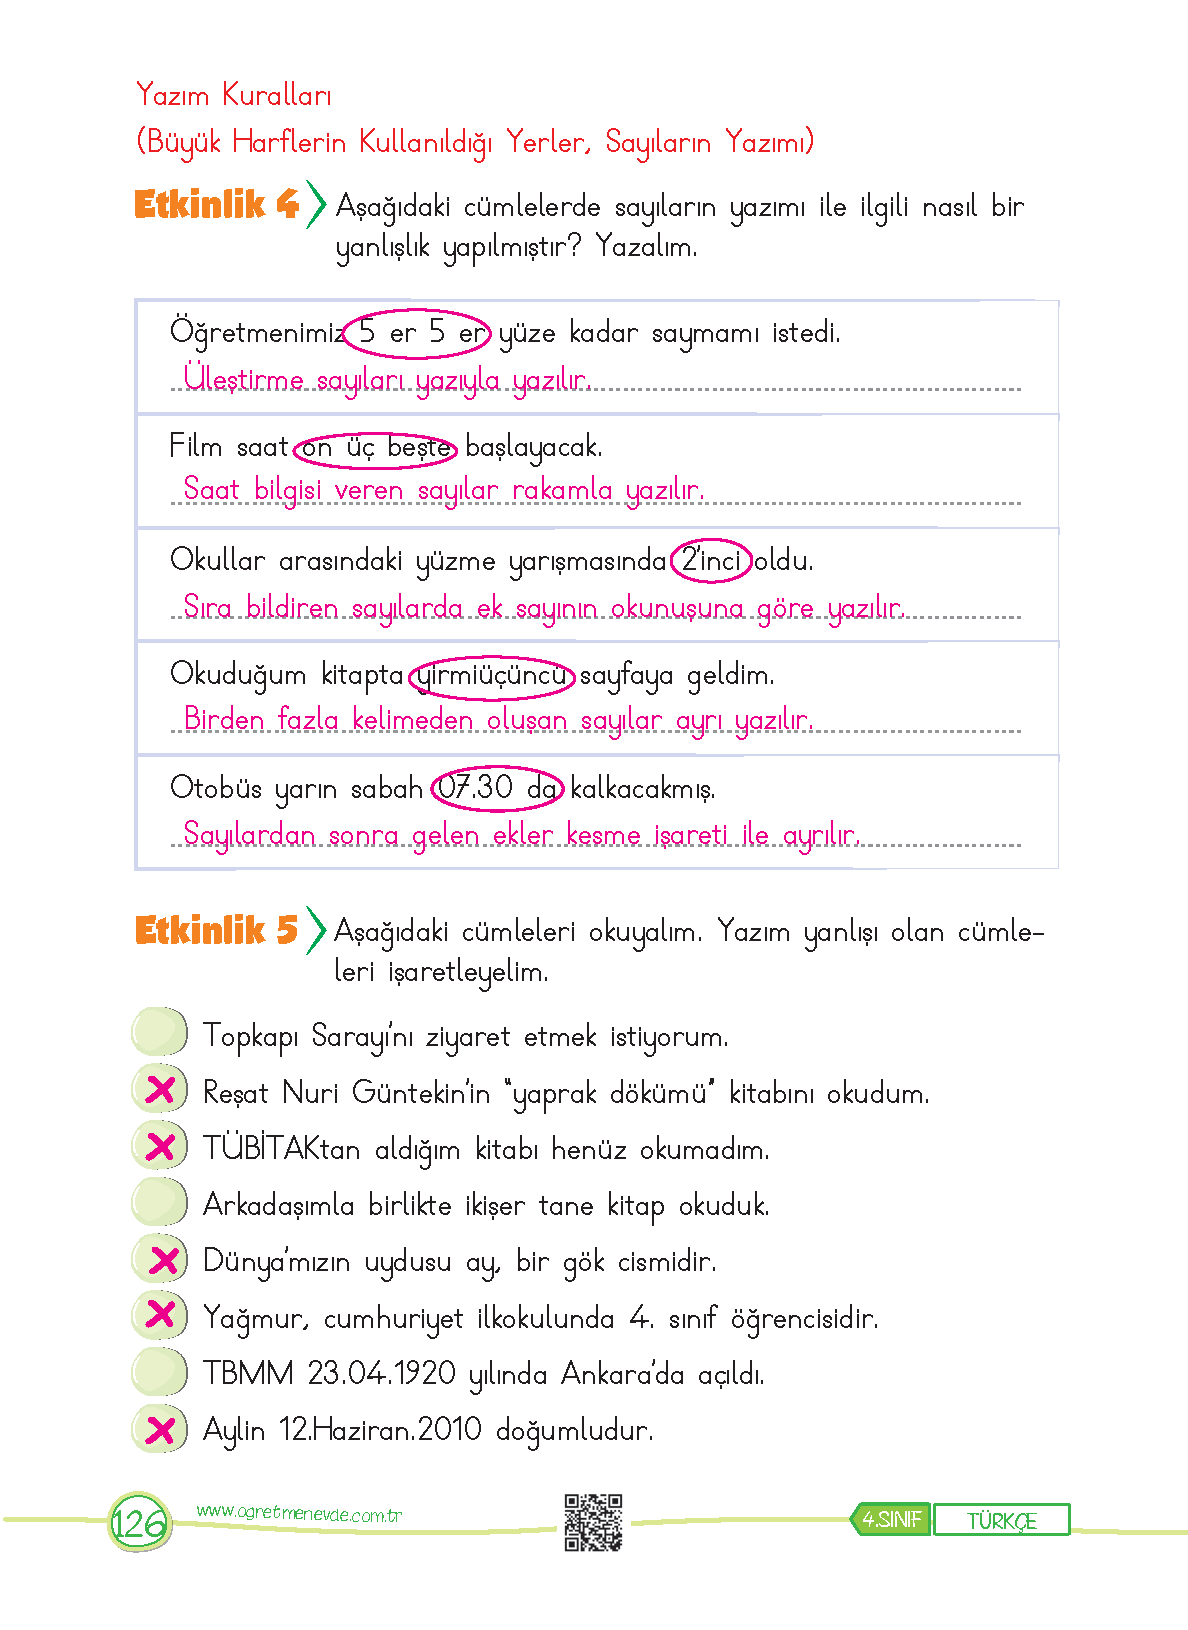 Yazım Kuralları
(Büyük Harflerin Kullanıldığı Yerler, Sayıların Yazımı)
Etkinlik 4 Aşağıdaki cümlelerde sayıların yazımı ile ilgili nasıl bir
yanlışlık yapılmıştır? Yazalım.
Öğretmenimiz 5 er 5 er yüze kadar saymamı istedi.
Üleştirme sayıları yazıyla yazılır.
Film saat on üç beşte başlayacak.
Saat bilgisi veren sayılar rakamla yazılır.
Okullar arasındaki yüzme yarışmasında 2'inci oldu.
Sıra bildiren sayılarda ek sayının okunuşuna göre yazılır.
Okuduğum kitapta yirmiüçüncü sayfaya geldim.
Birden fazla kelimeden oluşan sayılar ayrı yazılır.
Otobüs yarın sabah 07.30 da kalkacakmış.
Sayılardan sonra gelen ekler kesme işareti ile ayrılır.
Etkinlik 5 Aşağıdaki cümleleri okuyalım. Yazım yanlışı olan cümle-
leri işaretleyelim.
Topkapı Sarayı'nı ziyaret etmek istiyorum.
Reşat Nuri Güntekin'in "yaprak dökümü" kitabını okudum.
TÜBİTAKtan aldığım kitabı henüz okumadım.
Arkadaşımla birlikte ikişer tane kitap okuduk.
Dünya'mızın uydusu ay, bir gök cismidir.
Yağmur, cumhuriyet ilkokulunda 4. sınıf öğrencisidir.
TBMM 23.04.1920 yılında Ankara'da açıldı.
Aylin 12.Haziran.2010 doğumludur.
126 www.ogretmenevde.com.tr 4.SINIF TÜRKÇE